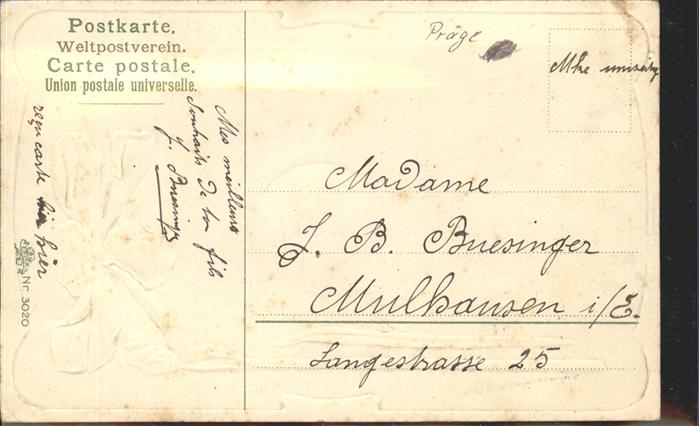 Postkarte.
Weltpostverein.
Carte postale.
Union postale universelle.
Präge
Mes meilleurs
Souhaits de ton fils
J. Buesinger
reçu carte hier
Nr. 3020
Madame
J. B. Buesinger
Mulhausen i/E.
Langestrasse 25